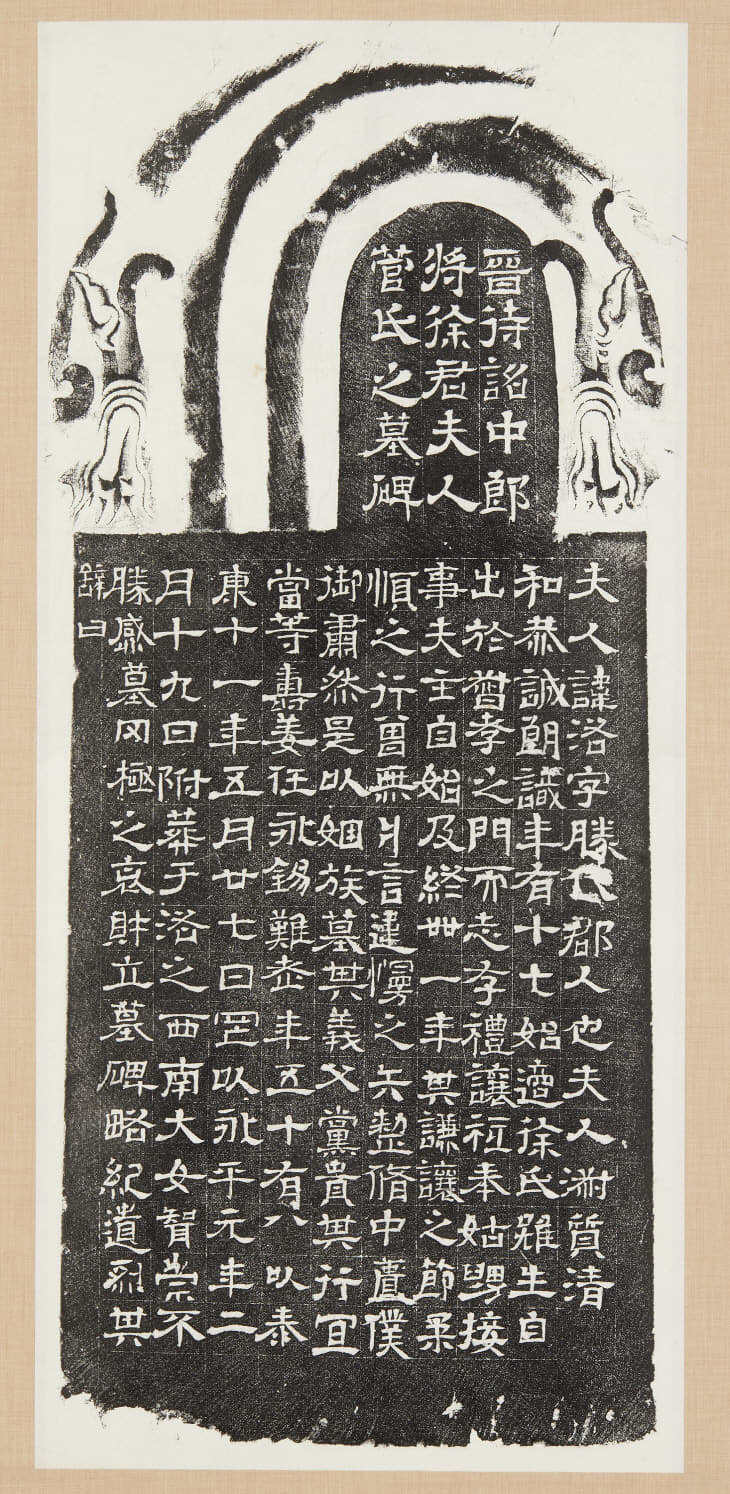 晉待詔中郎
将徐君夫人
菅氏之墓碑
夫人諱洛字勝代郡人也夫人淑質清
和恭誠朗識年有十七始適徐氏雖生自
出於孝之門而志存禮讓祗奉姑舅接
事夫主自始及終卅一年其謙讓之節
順之行曾無片言違慢之失整脩中匱僕
御肅然是以姻族慕其義父黨貴其行宜
當等壽姜任永錫難老年五十有八以泰
康十一年五月廿七日以永平元年二
月十九日附葬于洛之西南大女智崇不
勝感慕罔極之哀財立墓碑略紀遺烈其
辭曰